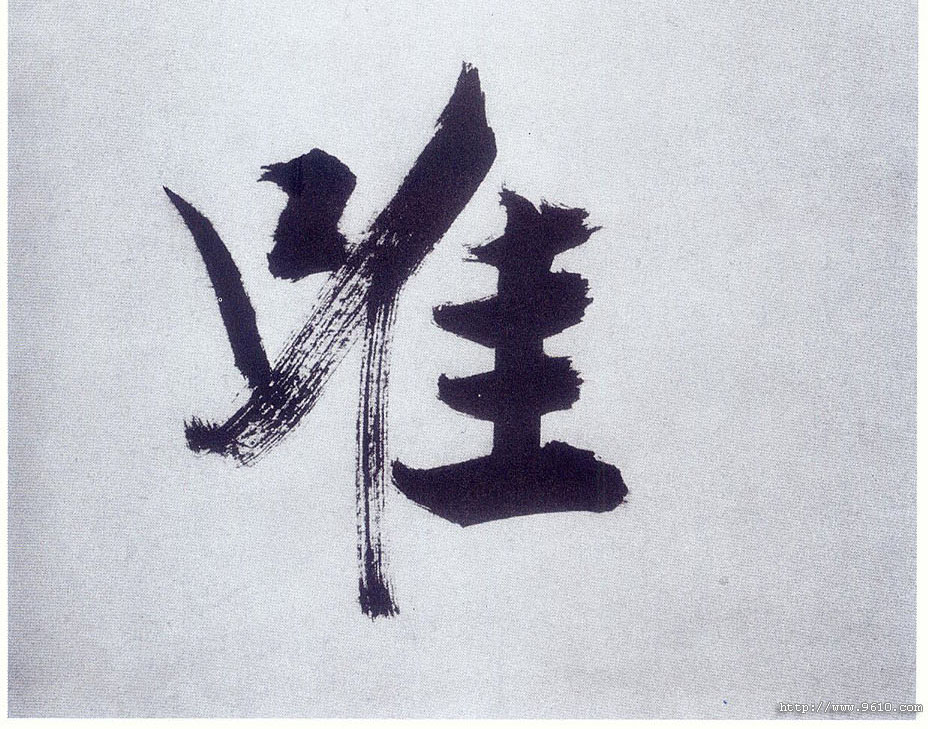 唯
http://www.9610.com